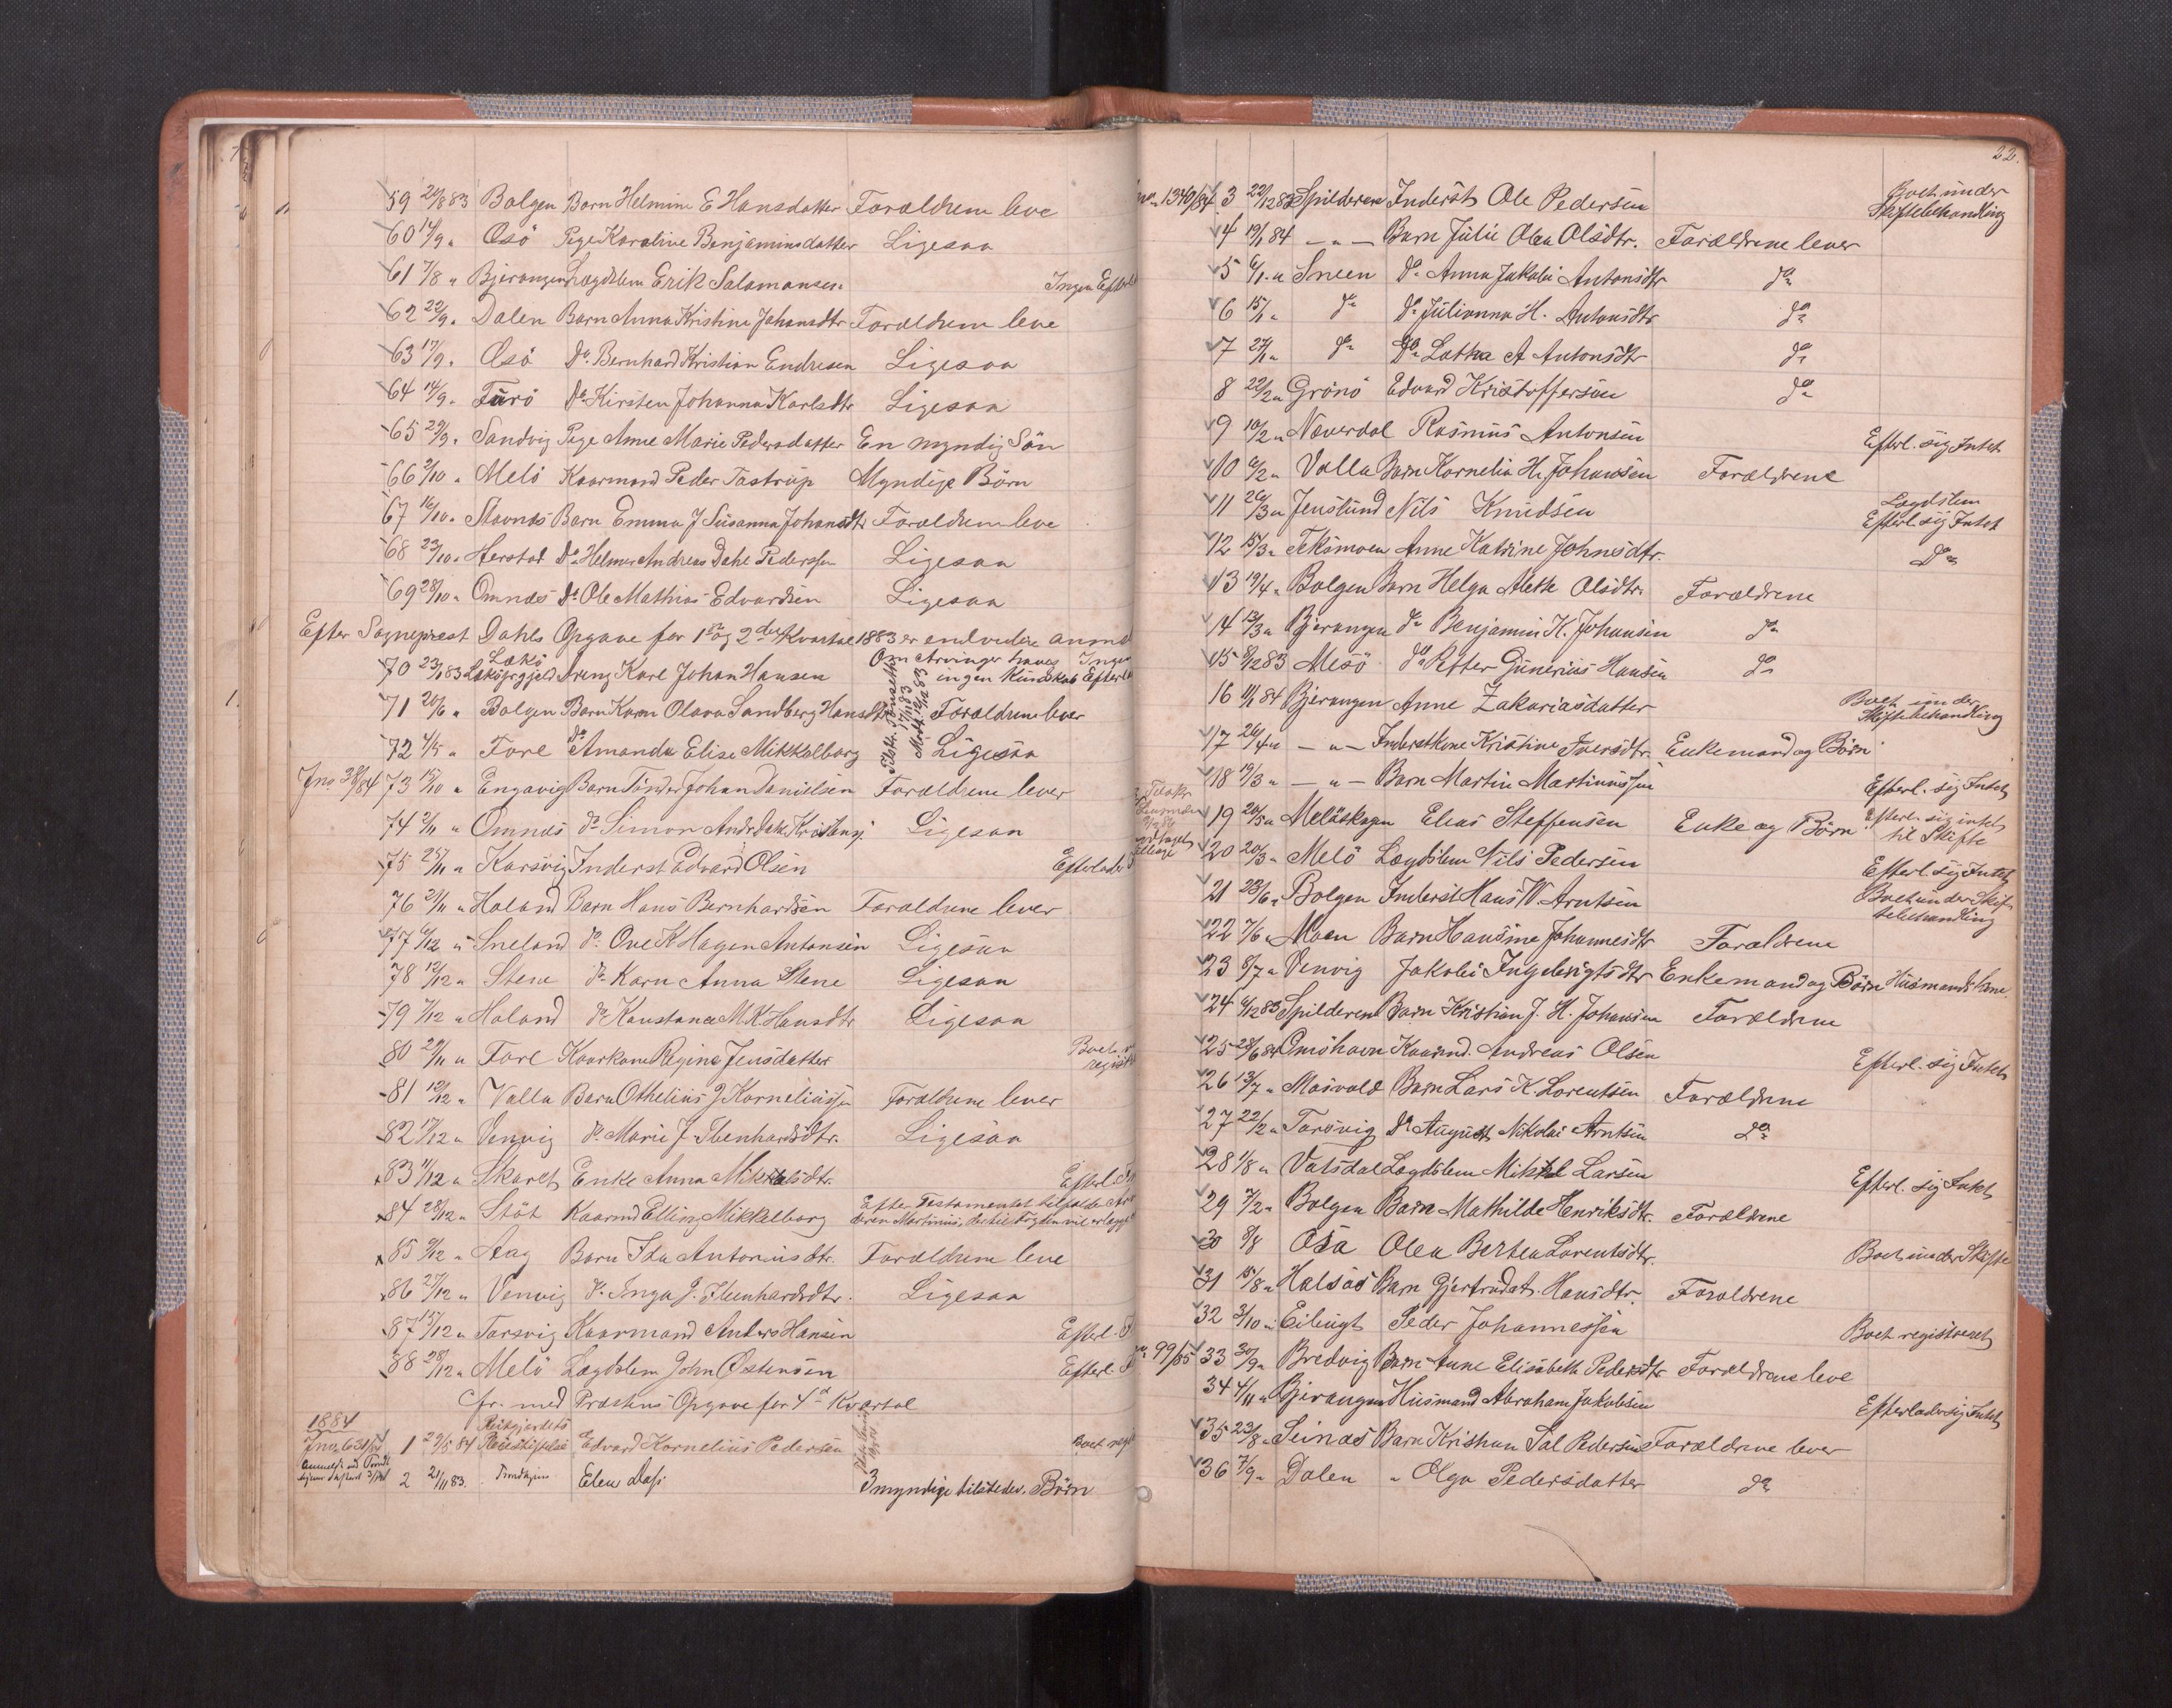 59 24/8 83 Bolgen Barn Helmine E Hansdatter Forældrene leve
60 14/9 " Osö Pige Karoline Benjaminsdatter Ligesaa
61 7/8 " Bjerangen Lægdslem Erik Salamonsen Ingen Efterl
62 22/9 " Dalen Barn Anna Kristine Johansdtr Forældrene leve
63 17/9 " Osö Do Bernhard Kristian Endresen Ligesaa
64 14/9 " Förö Do Kirsten Johanna Karlsdtr Ligesaa
65 29/9 " Sandvig Pige Anne Marie Pedersdatter En myndig Sön
66 2/10 " Melö Kaarmand Peder Tastrup Myndige Börn
67 16/10 " Stavnes Barn Emma J Susanna Johansdtr Forældrene leve
68 23/10 " Herstad Do Helmer Andreas Dahl Pedersen Ligesaa
69 28/10 " Omnæs Do Ole Mathias Edvardsen Ligesaa
Efter Sogneprest Dahls Opgave for 1ste og 2det Kvartal 1883 er endvidere anm
70 23/1 83 Dreng Karl Johan Hansen Om Arvinger haves ingen Kundskab Ingen Efterla
71 20/6 " Bolgen Barn Karn Olava Sandberg Hansdtr Forældrene lever
72 4/5 " Fore do Amanda Elise Mikkelborg Ligesaa
Jno 38/84 73 15/10 " Engavig Barn Tönder Johan Danielsen Forældrene lever
74 2/11 " Omnæs do Simon Andr Dahl Ligesaa
75 25/11 " Karsvig Inderst Edvard Olsen Efterlader
76 21/11 " Haland Barn Hans Bernhardsen Forældrene lever
77 6/12 " Sneland do Ove K Hagen Antonsen Ligesaa
78 12/12 " Stene do Karn Anna Stene Ligesaa
79 7/12 " Haland do Konstance M. K. Hansdtr Ligesaa
80 29/11 " Fore Kaarkone Regine Jensdatter Boet
81 12/12 " Valla Barn Othelius J Korneliussen Forældrene lever
82 17/12 " Venvig do Marie J. Ibenhardsdtr. Ligesaa
83 11/12 " Skaret Enke Anna Mikkelsdtr. Efterl.
84 28/12 " Stöt Kaarmd Elling Mikkelborg Efter Testamentet
85 9/12 " Aag Barn Ida Antoniusdtr. Forældrene leve
86 27/12 " Venvig do Inga J. Ibenhardsdtr. Ligesaa
87 15/12 " Torsvig Kaarmand Anders Hansen Efterl.
88 28/12 " Melö Lægdslem John Östensen Efterl.
Cfr. med Præstens Opgave for 4de Kvartal
1884
1 29/5 84 Edvard Kornelius Pedersen Boet
2 21/11 83. Elen Dass 3 myndige tilstedev. Börn
22.
no. 1340/84 3 22/12 83 Spilderen Inderst Ole Pedersen Boet under Skiftebehandling
4 19/1 84 — " — Barn Julie Olea Olsdtr. Forældrene lever
5 6/1 " Sneen do Anna Jakobi Antonsdtr do
6 15/1 " do do Julianna H. Antonsdtr do
7 27/1 " do do Lothea A Antonsdtr do
8 22/2 " Grönö Edvard Kristoffersen do
9 10/2 " Næverdal Rasmus Antonsen Efterl. sig Intet
10 6/2 " Valla Barn Kornelia H. Johansen Forældrene
11 26/3 " Jenslund Nils Knudsen Lægdslem Efterl. sig Intet
12 15/3 " Teksmoen Anne Katrine Johnsdtr. Do
13 19/4 " Bolgen Barn Helga Alette Olsdtr. Forældrene
14 13/3 " Bjerangen do Benjamin K. Johansen do
15 8/12 83 Mesö do Petter Gunerius Hansen do
16 11/1 84 Bjerangen Anne Zakariasdatter Boet under Skiftebehandling
17 26/4 " — " — Inderstkone Kristine Iversdtr. Enkemand og Börn
18 19/3 " — " — Barn Martin Martinussen Efterl. sig Intet
19 20/5 " Melöskagen Elias Steffensen Enke og Börn Efterl. sig intet til Skifte
20 20/3 " Melö Lægdslem Nils Pedersen Efterl. sig Intet
21 23/6 " Bolgen Inderst Hans W. Arntsen Boet under Skiftebehandling
22 7/6 " Moen Barn Hansine Johannesdtr Forældrene
23 8/7 " Venvig Jakobi Ingebrigtsdtr Enkemand og Börn Husmandskone
24 6/12 83 Spilderen Barn Kristian J. H. Johansen Forældrene
25 28/6 84 Onöhavn Kaarmd. Andreas Olsen Efterl. sig Intet
26 13/7 " Mosvold Barn Lars K. Lorentsen Forældrene
27 22/2 " Torsvig Do August Nikolai Arntsen do
28 1/8 " Vatsdal Lægdslem Mikkel Larsen Efterl. sig Intet
29 7/2 " Bolgen Barn Mathilde Henriksdtr. Forældrene
30 9/8 Osa Olea Bertea Lorentsdtr. Boet under Skifte
31 15/8 " Halsaas Barn Gjertrud Hansdtr. Forældrene
32 3/10 " Peder Johannessen Boet registreret
99/85 33 30/9 " Bredvig Barn Anne Elisabeth Pedersdtr Forældrene leve
34 4/11 " Bjerangen Husmand Abraham Jakobsen Efterlader sig Intet
35 23/8 " Seinæs Barn Kristian Sal Pedersen Forældrene lever
36 7/9 " Dalen " Olga Pedersdatter do